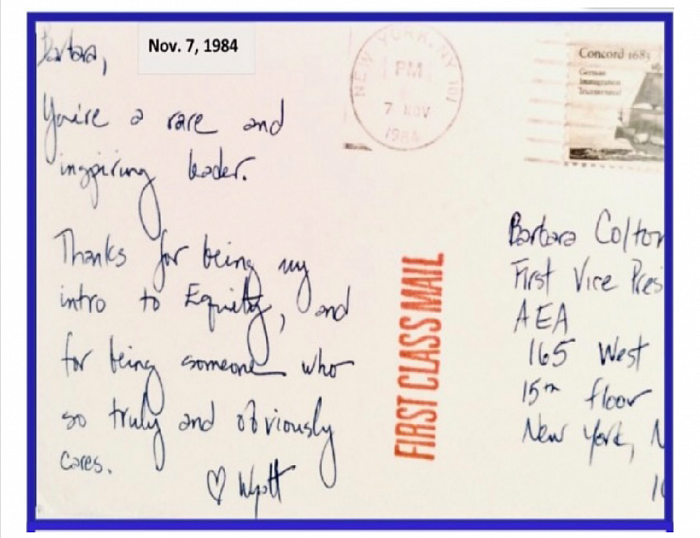 Barbara,
Nov. 7, 1984
You're a rare and
inspiring leader.
Thanks for being my
intro to Equity, and
for being someone who
so truly and obviously
cares.
♡ Wyatt
NEW YORK, NY 101
PM
7 NOV
1984
Concord 1683
German
Immigration
Tricentennial
FIRST CLASS MAIL
Barbara Colton
First Vice Pres
AEA
165 West
15th floor
New York, N
10